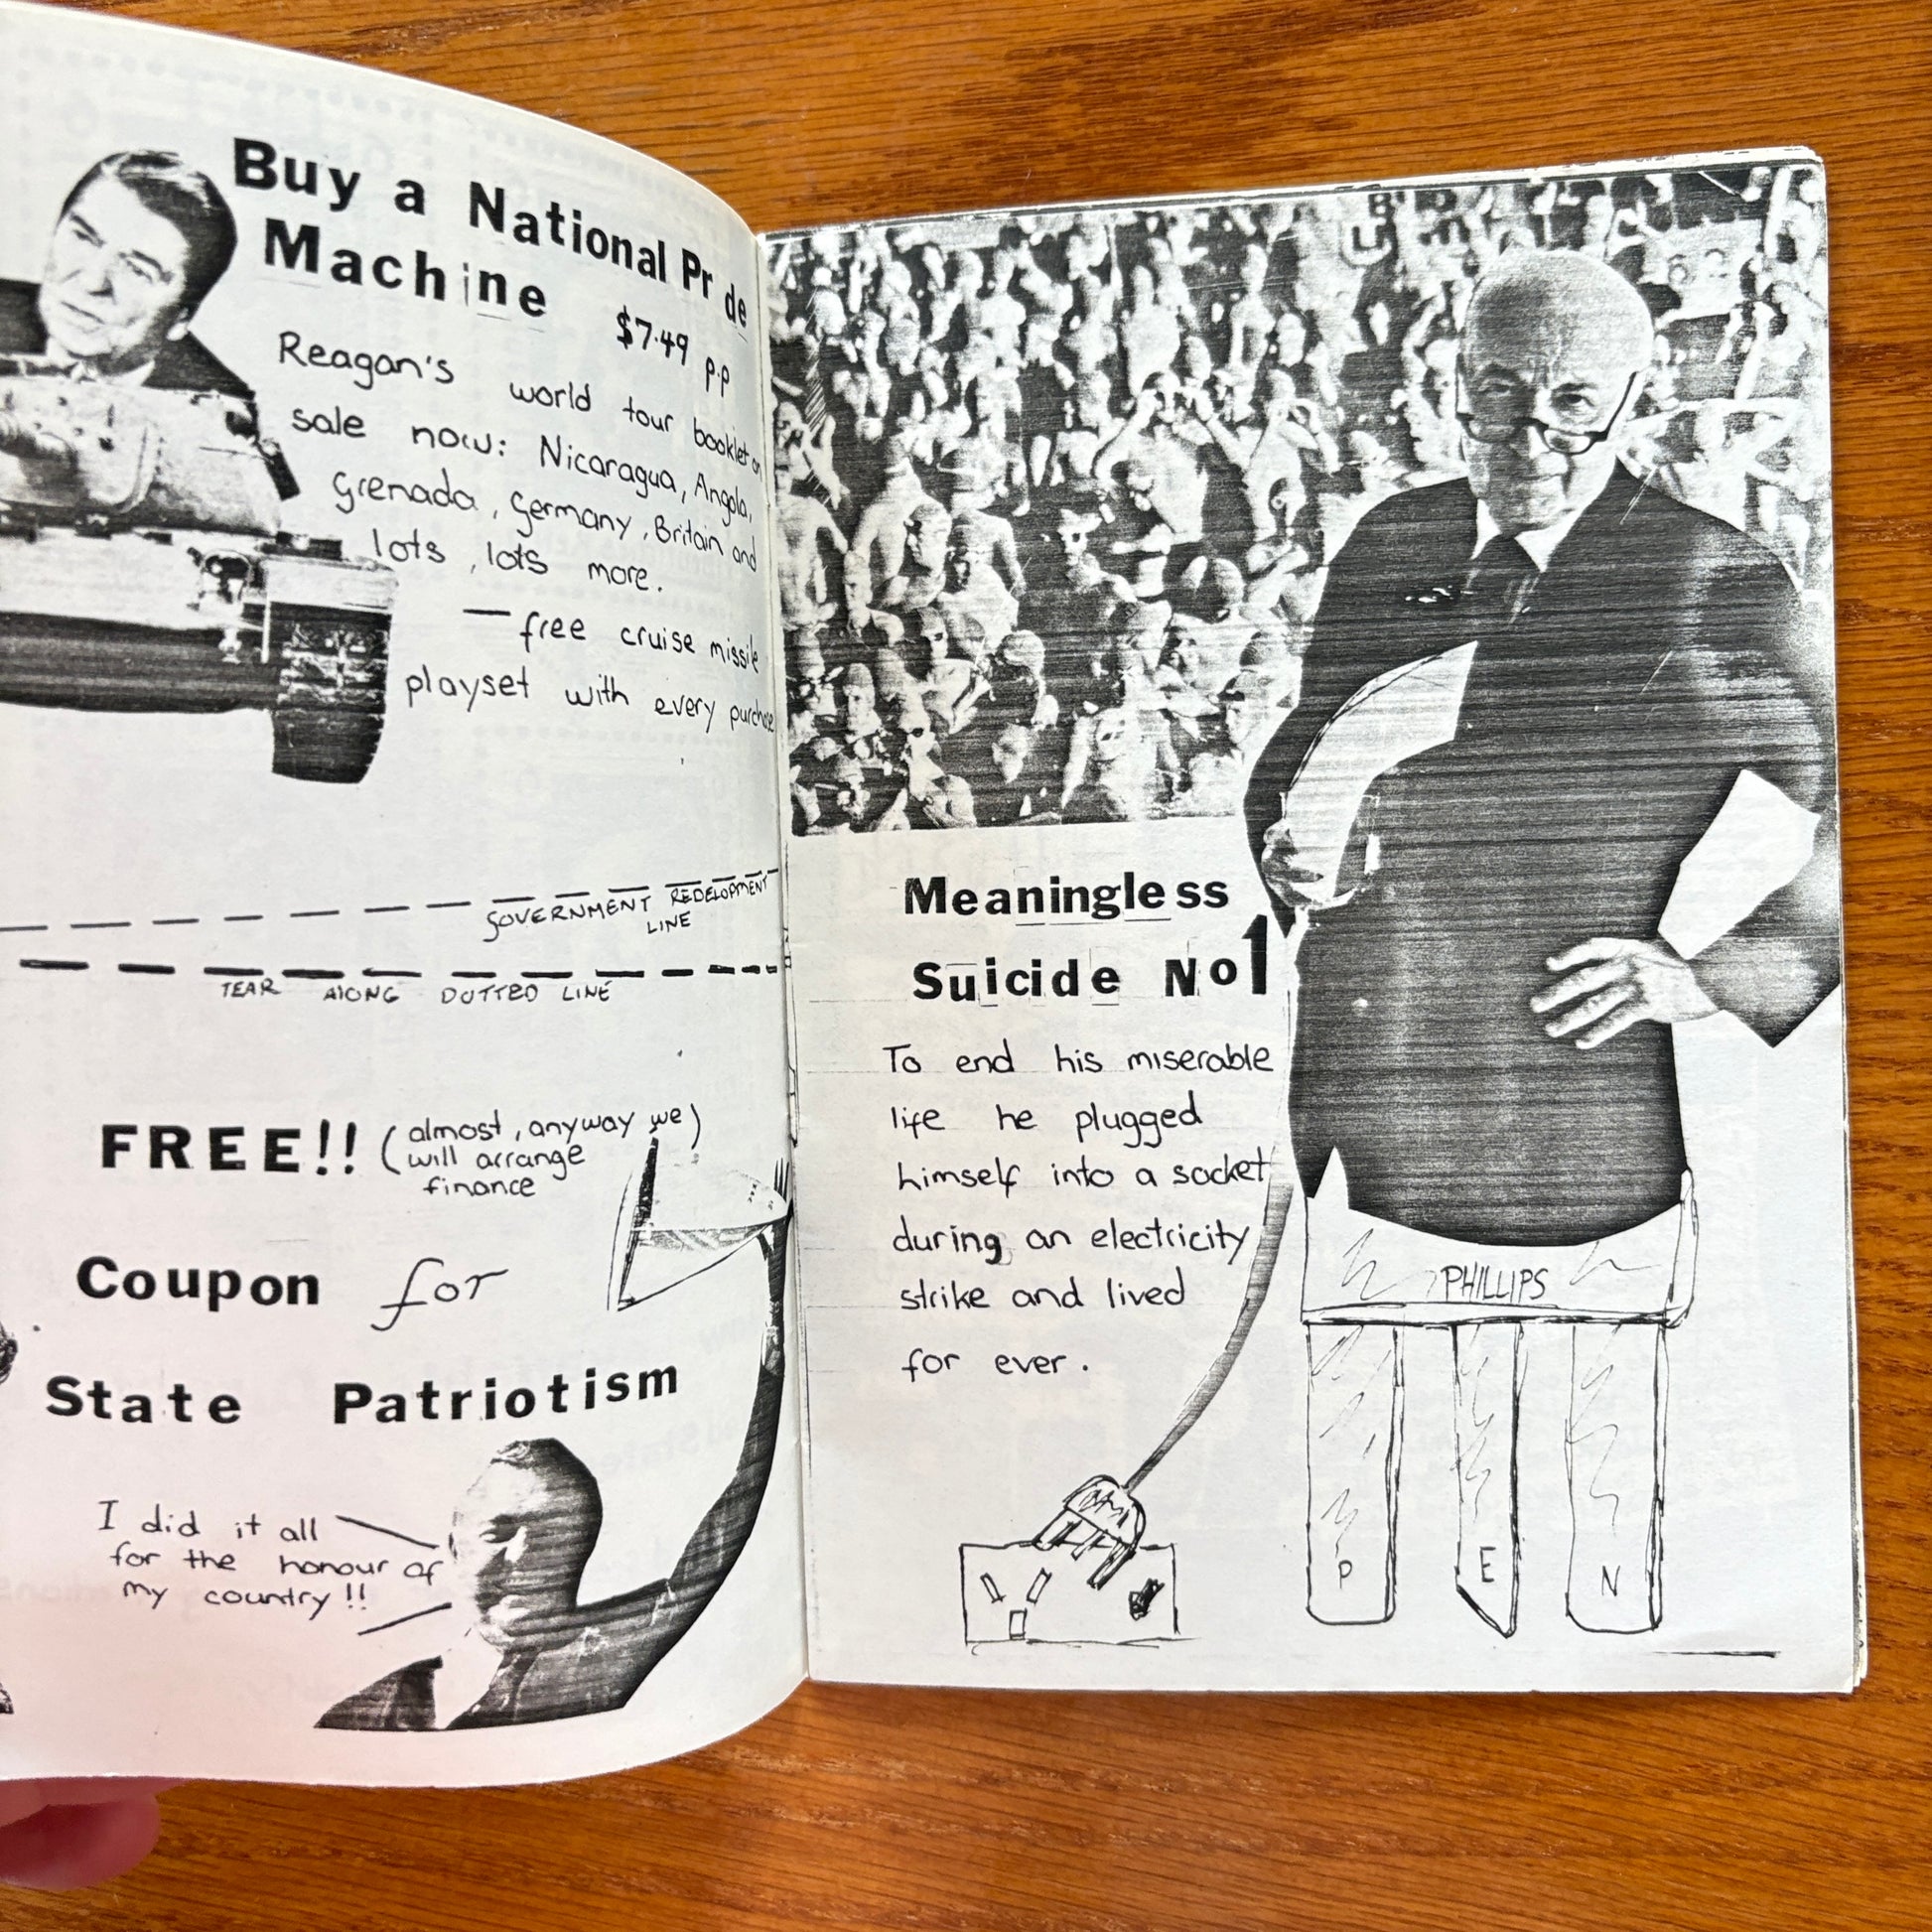 Buy a National Pr de
Machine
$7.49 p.p
Reagan's world tour booklet on
sale now: Nicaragua, Angola,
Grenada, Germany, Britain and
lots, lots more.
— free cruise missile
playset with every purchase
GOVERNMENT REDELOPMENT
LINE
TEAR ALONG DOTTED LINE
FREE!! (almost, anyway we)
will arrange
finance
Coupon for
State Patriotism
I did it all
for the honour of
my country!!
Meaningless
Suicide No1
To end his miserable
life he plugged
himself into a socket
during an electricity
strike and lived
for ever.
PHILLIPS
P E N